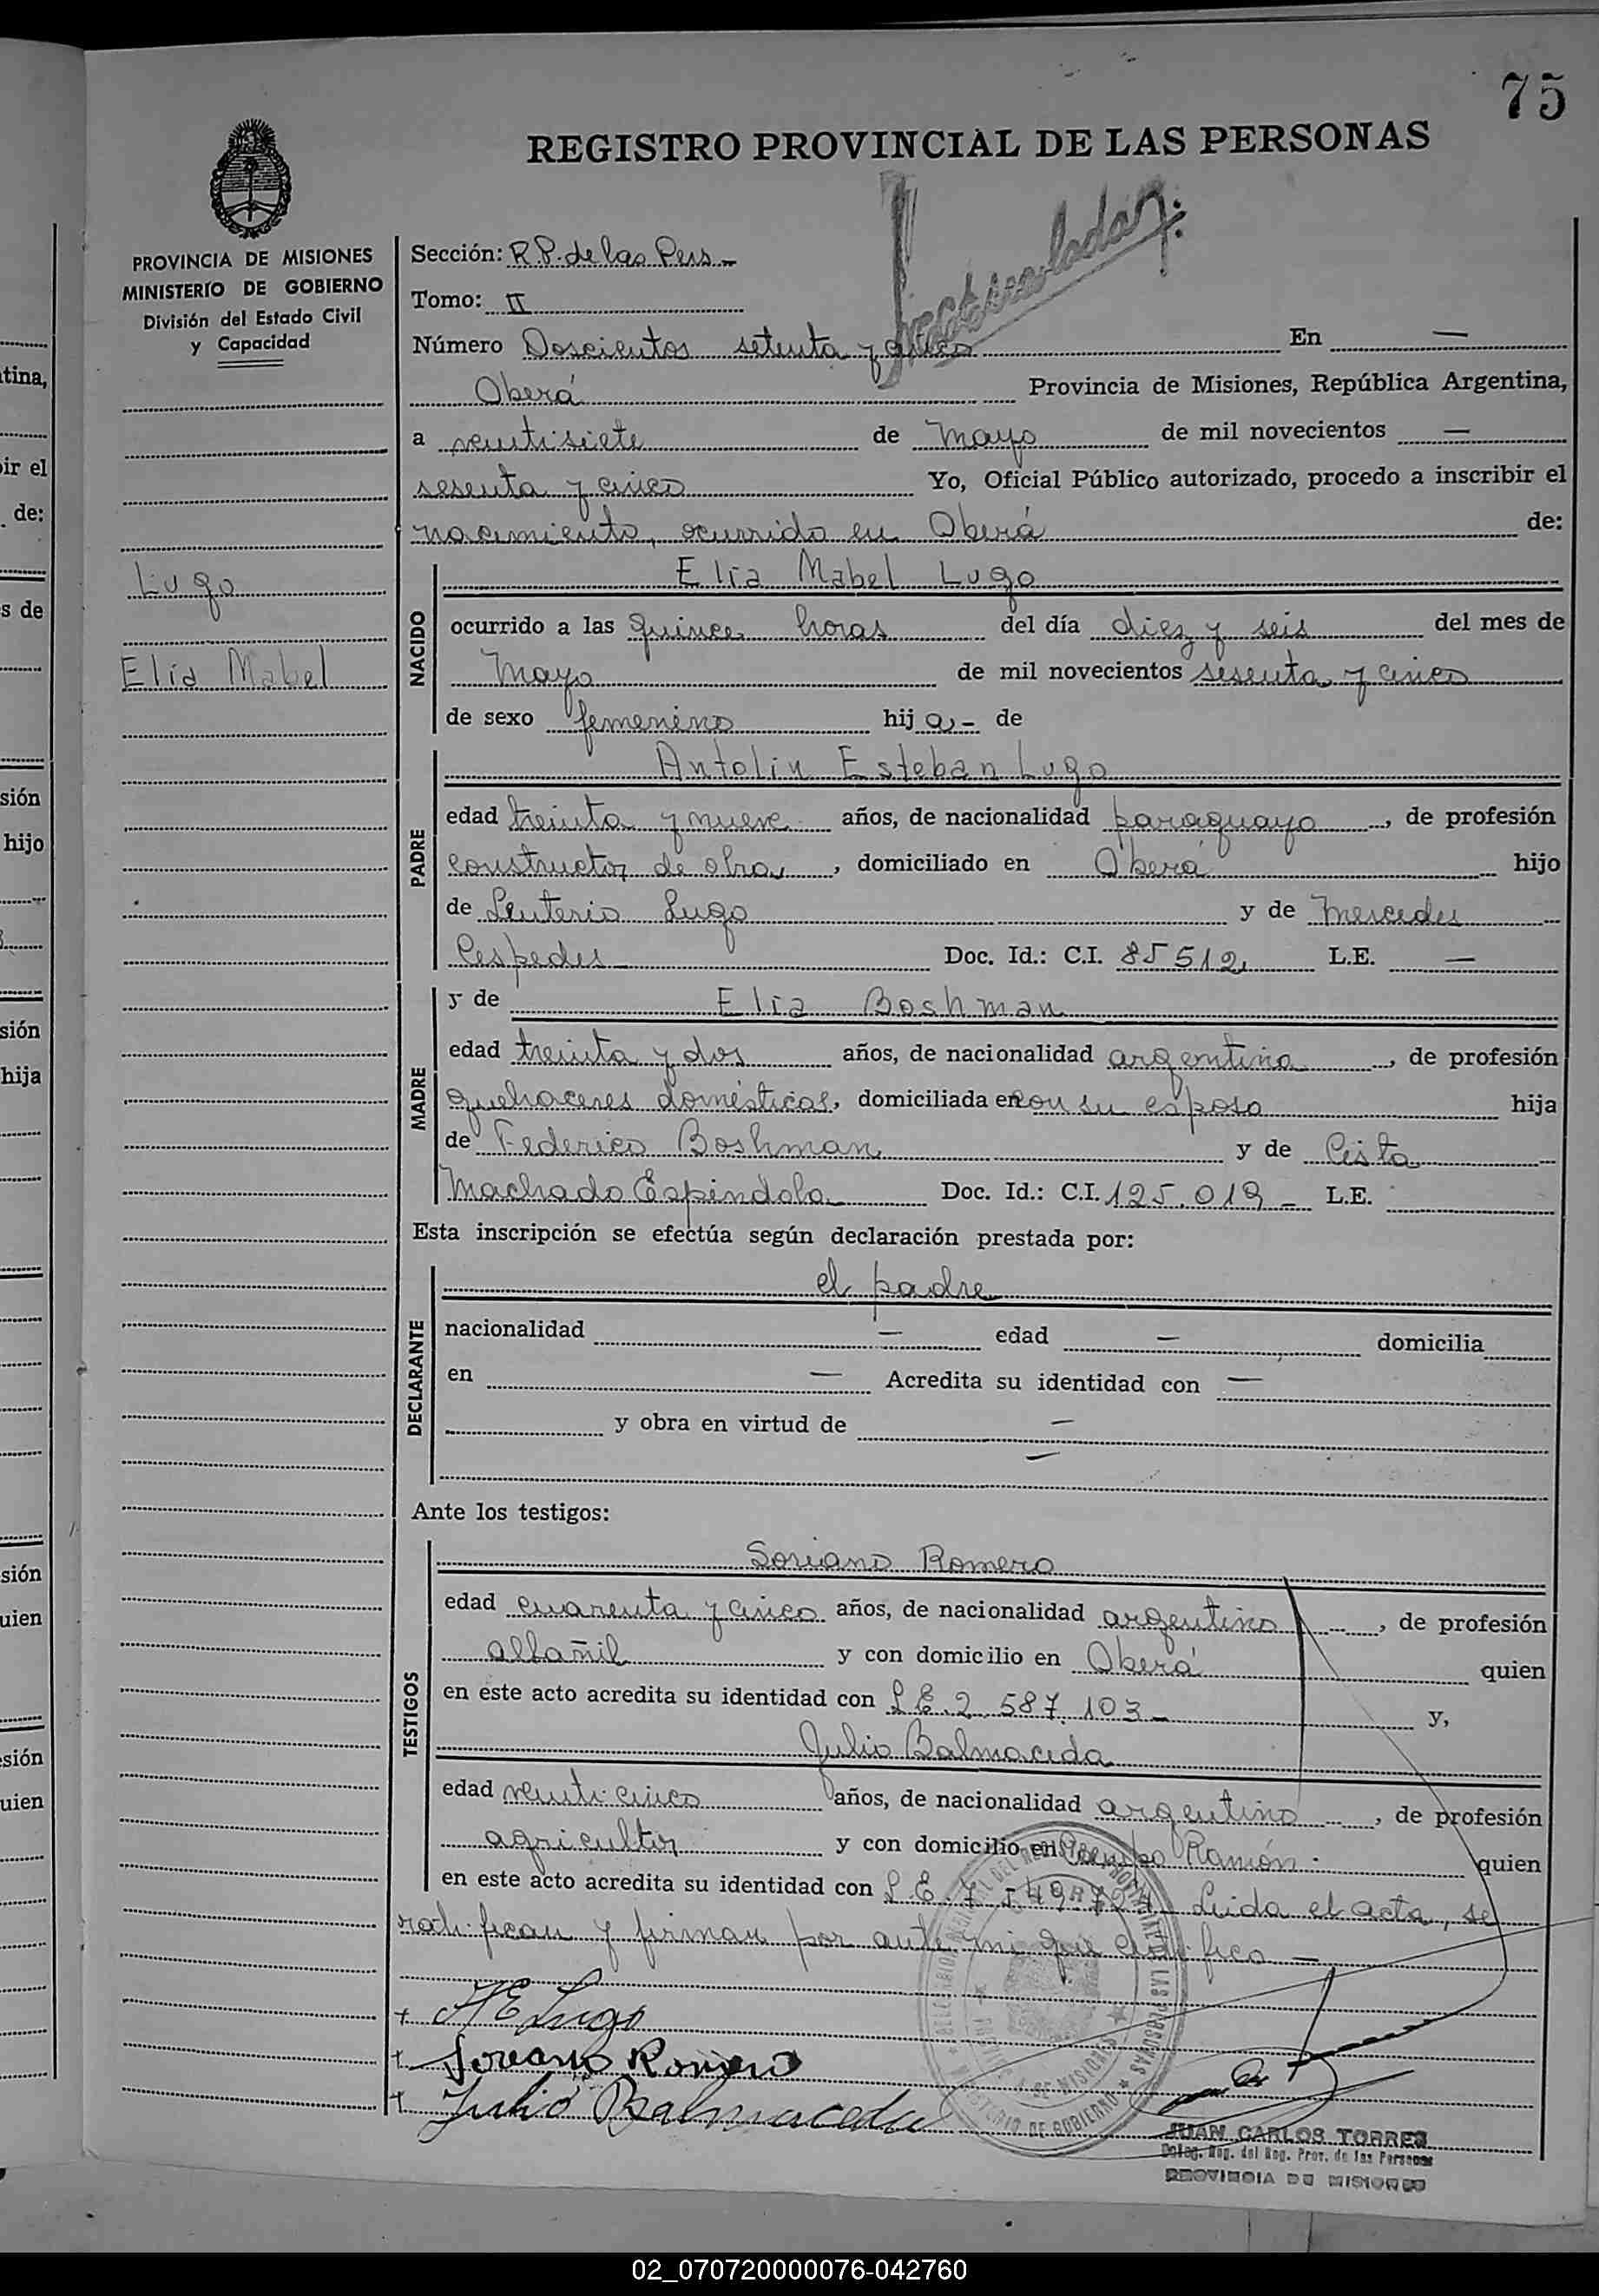 75
REGISTRO PROVINCIAL DE LAS PERSONAS
PROVINCIA DE MISIONES
MINISTERIO DE GOBIERNO
División del Estado Civil
y Capacidad
Lugo
Elia Mabel
Sección: R.P. de las Pers -
Tomo: II
Número Doscientos setenta y cinco En —
Oberá Provincia de Misiones, República Argentina,
a veintisiete de Mayo de mil novecientos —
sesenta y cinco Yo, Oficial Público autorizado, procedo a inscribir el
nacimiento, ocurrido en Oberá de:
NACIDO
Elia Mabel Lugo
ocurrido a las quince horas del día diez y seis del mes de
Mayo de mil novecientos sesenta y cinco
de sexo femenino hija - de
PADRE
Antolin Esteban Lugo
edad treinta y nueve años, de nacionalidad paraguayo, de profesión
constructor de obra, domiciliado en Oberá hijo
de Leuterio Lugo y de Mercedes
Cespedes Doc. Id.: C.I. 85512 L.E. —
MADRE
y de Elia Boshman
edad treinta y dos años, de nacionalidad argentina, de profesión
quehaceres domésticos, domiciliada en con su esposo hija
de Federico Boshman y de
Machado Espindola Doc. Id.: C.I. 125.019 - L.E.
Esta inscripción se efectúa según declaración prestada por:
DECLARANTE
el padre
nacionalidad — edad — domicilia
en — Acredita su identidad con —
y obra en virtud de —
—
Ante los testigos:
TESTIGOS
Soriano Romero
edad cuarenta y cinco años, de nacionalidad argentino, de profesión
albañil y con domicilio en Oberá quien
en este acto acredita su identidad con L.E. 2.587.103 - y,
Julio Balmaceda
edad veinticinco años, de nacionalidad argentino, de profesión
agricultor y con domicilio en Campo Ramón. quien
en este acto acredita su identidad con L.E. Leida el acta, se
ratifican y firman por ante mi que certifico —
+ AELugo
+ Soriano Romero
+ Julio Balmaceda
JUAN CARLOS TORRES
Deleg. Reg. del Reg. Prov. de las Personas
PROVINCIA DE MISIONES
02_070720000076-042760